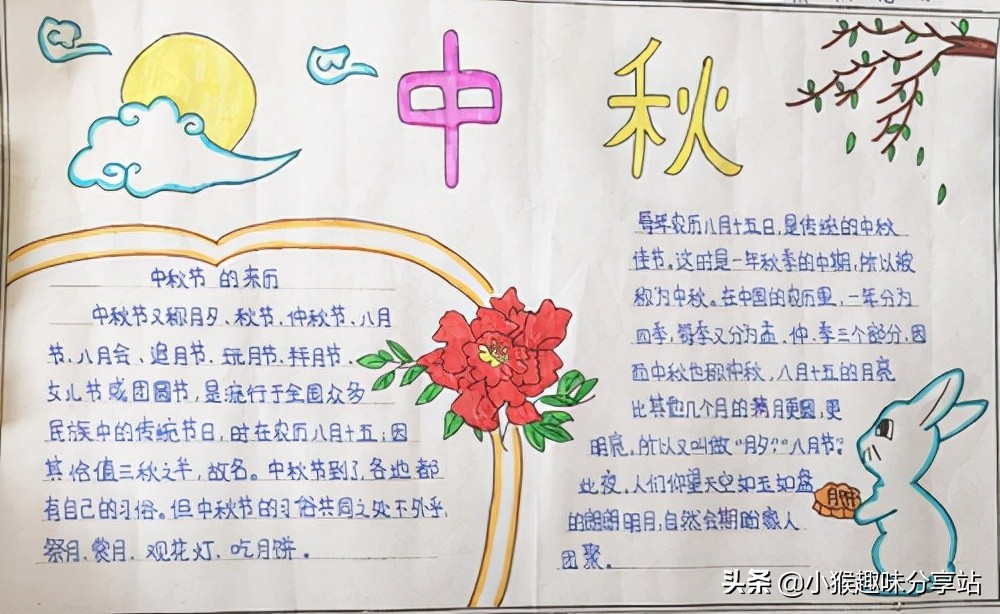 中秋
中秋节 的来历
中秋节又称月夕、秋节、仲秋节、八月
节、八月会、追月节、玩月节、拜月节、
女儿节或团圆节，是流行于全国众多
民族中的传统节日，时在农历八月十五；因
其恰值三秋之半，故名。中秋节到了，各地都
有自己的习俗。但中秋节的习俗共同之处不外乎
祭月、赏月、观花灯、吃月饼。
每年农历八月十五日，是传统的中秋
佳节。这时是一年秋季的中期，所以被
称为中秋。在中国的农历里，一年分为
四季，每季又分为孟、仲、季三个部分，因
而中秋也称仲秋，八月十五的月亮
比其他几个月的满月更圆，更
明亮，所以又叫做“月夕”，“八月节”。
此夜，人们仰望天空如玉如盘
的朗朗明月，自然会期盼家人
团聚。
月饼
头条 @小猴趣味分享站